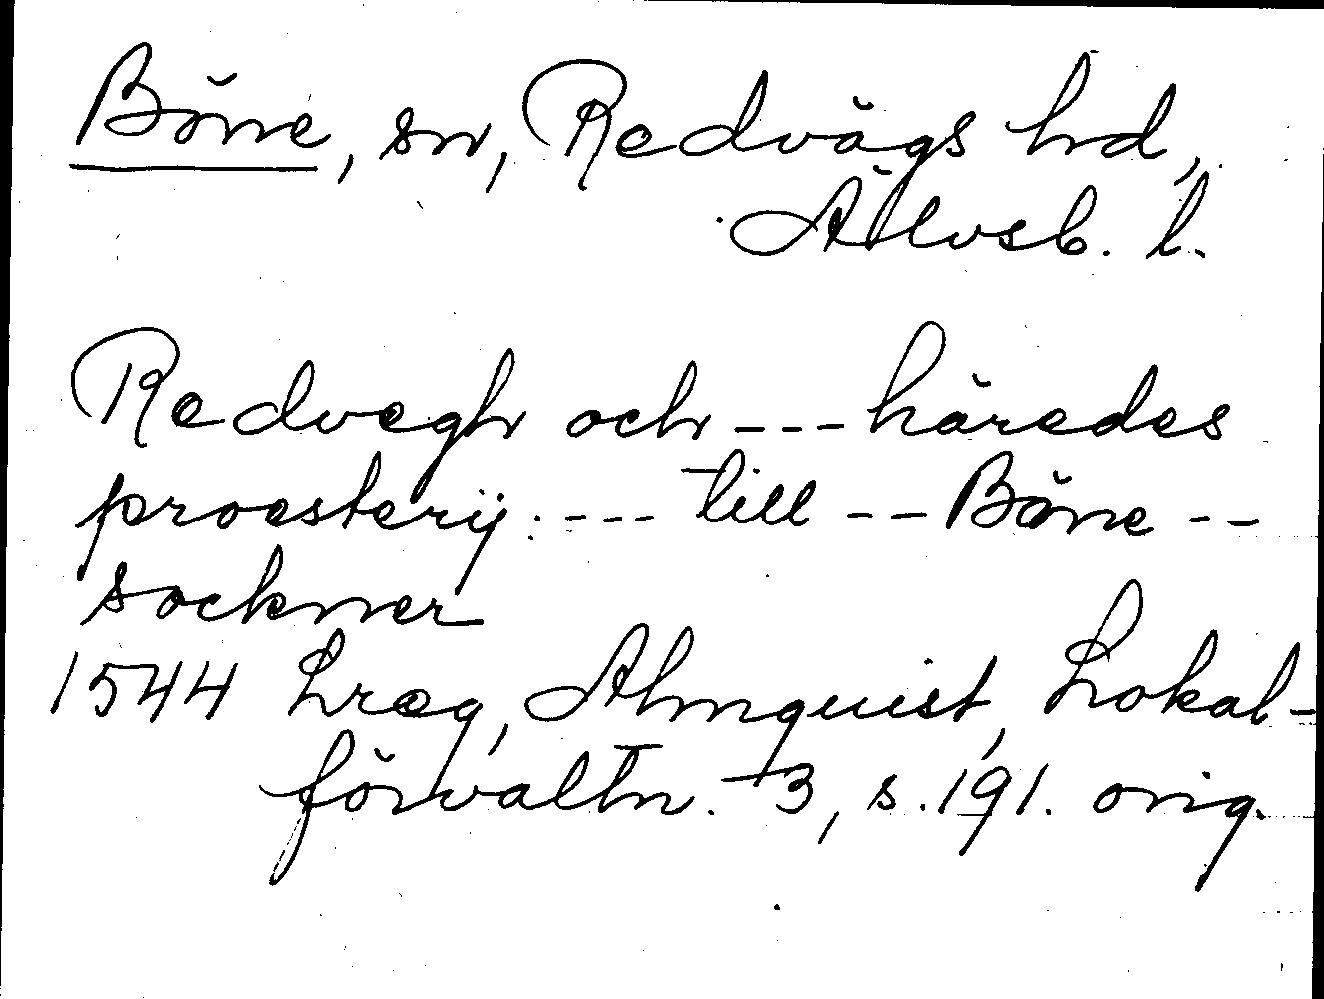 Böne, sn, Redvägs hd,
Älvsb. l.
Redvegh och --- häredes
proesterij. --- till -- Böne --
sockner
1544 Lreg, Almquist, Lokal-
förvaltn. 3, s. 191. orig.